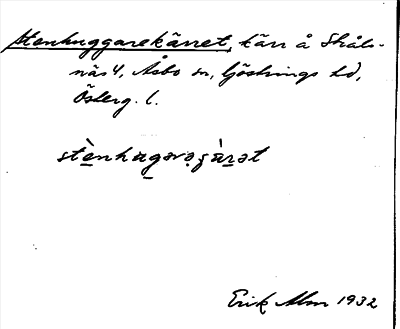 Stenhuggarekärret, kärr å Stråls-
näs 4, Åsbo sn, Göstrings hd,
Österg. l.
stènhugarəçà̈rət
Erik Alm 1932